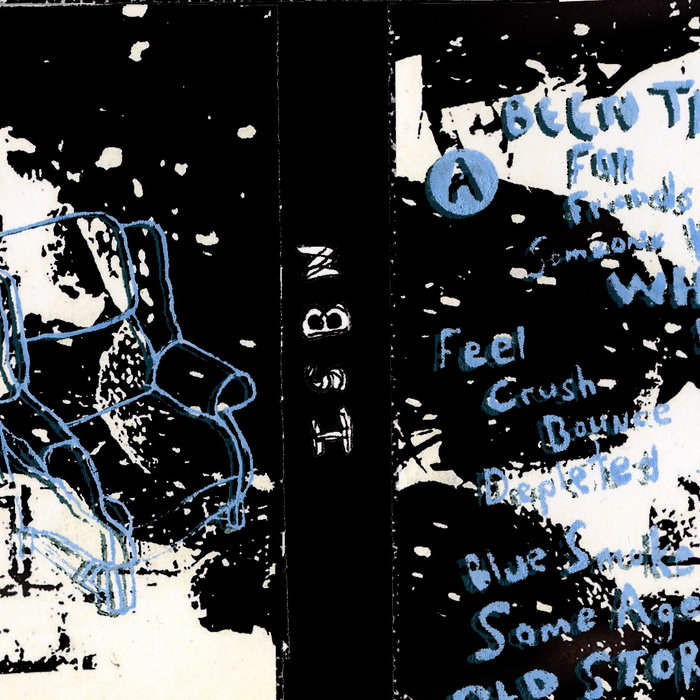 ISBN
A
BEEN T
Full
Friends
Someone
WH
Feel
Crush
Bounce
Depleted
Blue Smoke
Same Age
OLD STOR